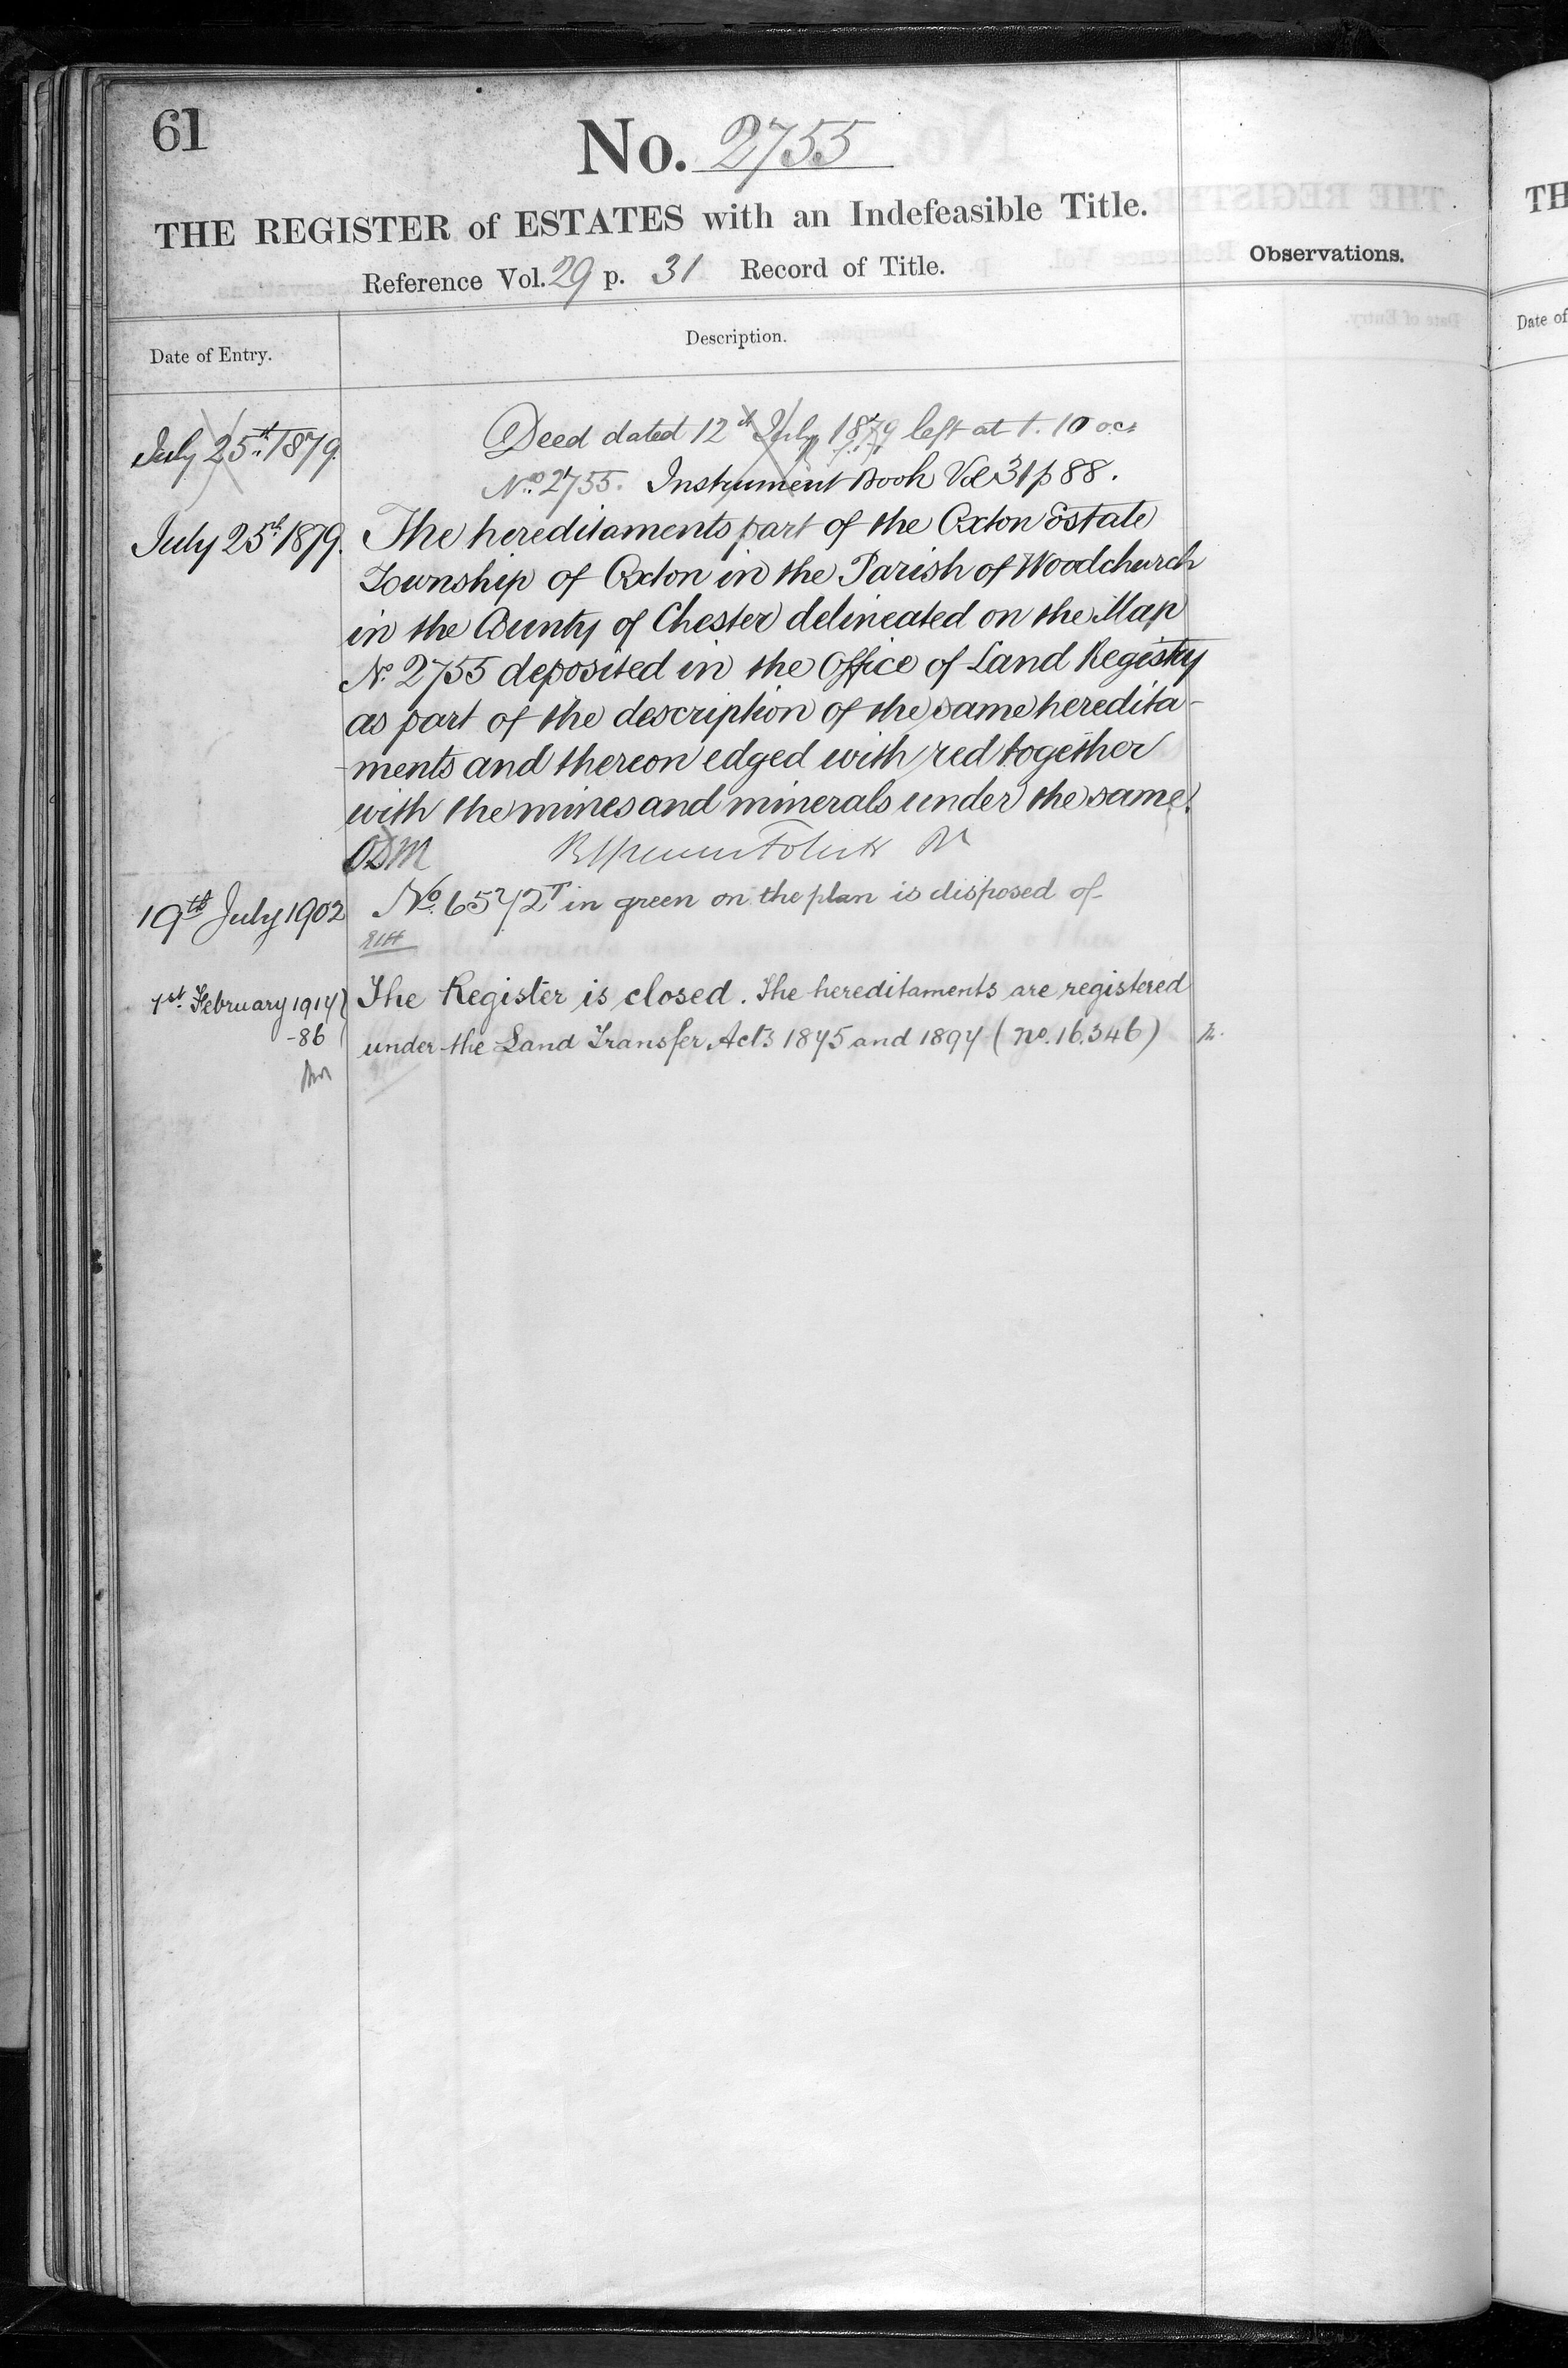 61
No. 2755
THE REGISTER of ESTATES with an Indefeasible Title.
Reference Vol. 29 p. 31 Record of Title.
Observations.
Date of Entry.
Description.
July 25th 1879. Deed dated 12th July 1879 left at 1.10 oc:
No. 2755. Instrument Book Vol 31 p 88.
July 25th 1879. The hereditaments part of the Oxton Estate
Township of Oxton in the Parish of Woodchurch
in the County of Chester delineated on the Map
No. 2755 deposited in the Office of Land Registry
as part of the description of the same heredita-
-ments and thereon edged with red together
with the mines and minerals under the same.
ODM
19th July 1902 No. 6572T in green on the plan is disposed of
1st February 1914 The Register is closed. The hereditaments are registered
-86 under the Land Transfer Acts 1875 and 1897 (No. 16.346)
TH
Date of